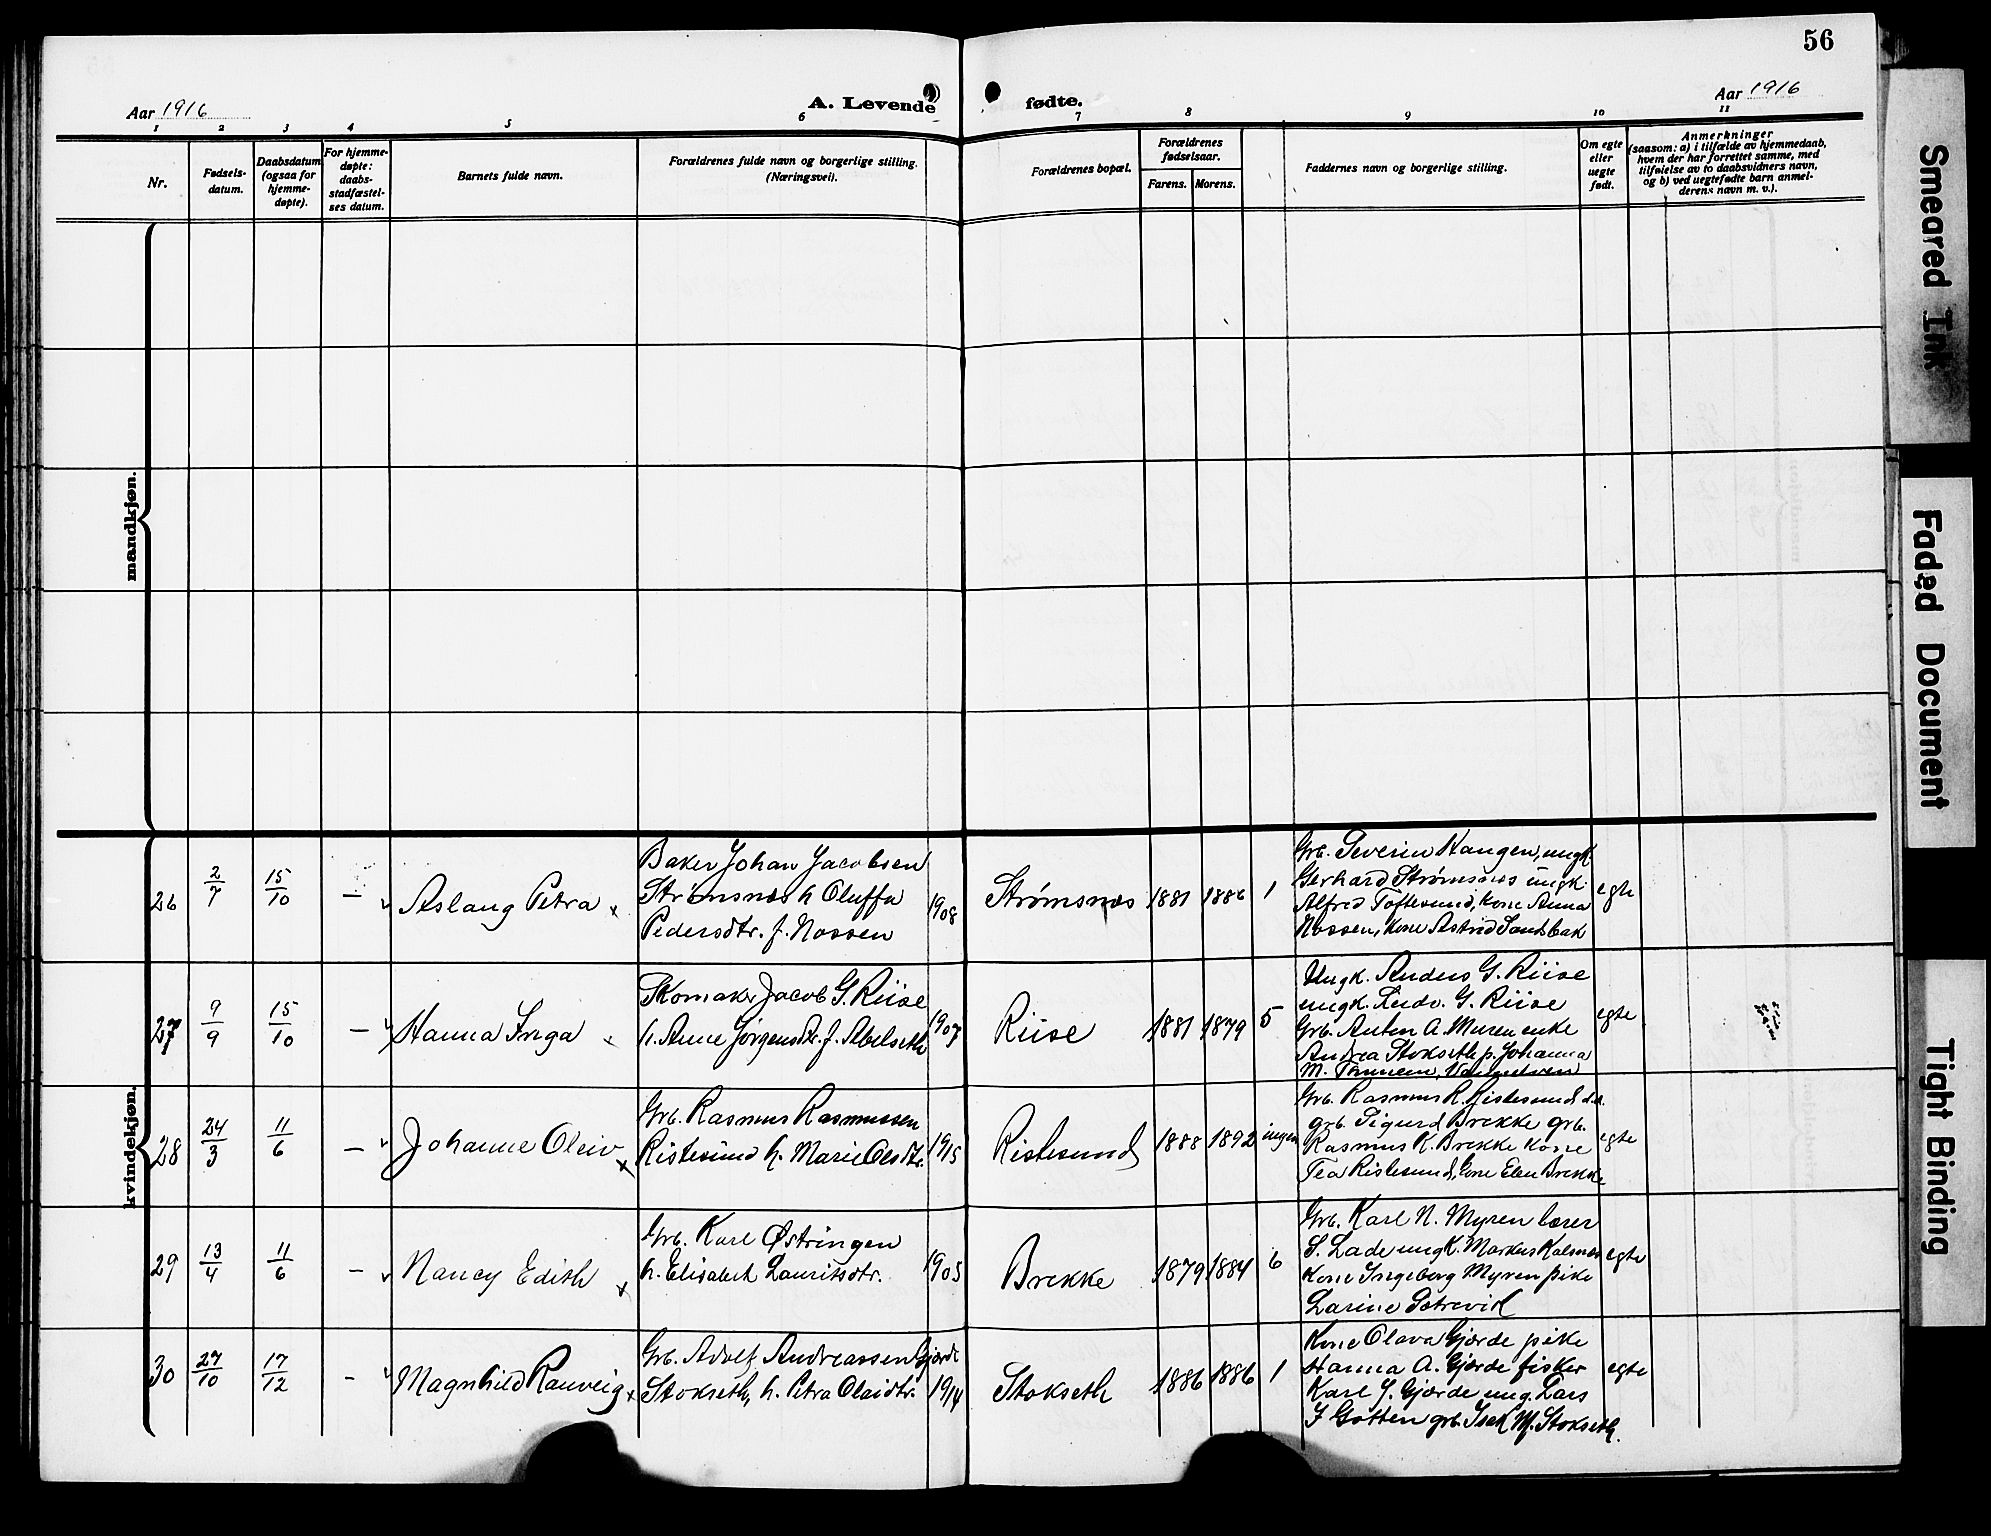 56
Aar 1916
A. Levende
fødte.
Aar 1916
1 2 3 4 5 6 7 8 9 10 11
Nr.
Fødsels-
datum.
Daabsdatum
(ogsaa for
hjemme-
døpte).
For hjemme-
døpte:
daabs-
stadfæstel-
ses datum.
Barnets fulde navn.
Forældrenes fulde navn og borgerlige stilling.
(Næringsvei).
Forældrenes bopæl.
Forældrenes
fødselsaar.
Farens. Morens.
Faddernes navn og borgerlige stilling.
Om egte
eller
uegte
født.
Anmerkninger
(saasom: a) i tilfælde av hjemmedaab,
hvem der har forrettet samme, med
tilføielse av to daabsvidners navn,
og b) ved uegtefødte barn anmel-
derens navn m. v.).
mandkjøn.
kvindekjøn.
26
2/7
15/10
—
Aslaug Petra
Baker Johan Jacobsen
Strømsnæs h Oluffa
Pedersdtr. f. Nossen
1908
Strømsnæs
1881
1886
1
Grb. Severin Haugen, ungk
Gerhard Strømsnes ungk.
Alfred Toftesund, Kone Anna
Nossen, Kone Astrid Sandbak
egte
27
9/9
15/10
—
Hanna Inga
Skomaker Jacob G. Riise
h. Anne Jørgensdtr. f. Abelseth
1907
Riise
1881
1879
5
Ungk. Anders G. Riise
ungk. Ludv. G. Riise
Grb. Anton A. Muren enke
Andrea Stokseth p. Johanna
M.
egte
28
24/3
11/6
—
Johanne Oleiv
Grb. Rasmus Rasmussen
Ristesund h. Marie Olsdtr.
1915
Ristesund
1888
1892
ingen
Grb. Rasmus R. Ristesund
grb. Sigurd Brekke grb.
Rasmus K. Brekke kone
Tea Ristesund, kone Elen Brekke
egte
29
13/4
11/6
—
Nancy Edith
Grb. Karl Østringen
h. Elisabet Lauritsdtr.
1905
Brekke
1879
1884
6
Grb. Karl N. Myren lærer
S. Lade ungk. Markus Kalsnes
Kone Ingeborg Myren pike
Larine Sætrevik
egte
30
27/10
17/12
-
Magnhild Rauveig
Grb. Adolf Andreassen Gjørde
Stokseth, h. Petra Olaidtr.
1914
Stokseth
1886
1886
1
Kone Olava Gjørde pike
Hanna A. Gjørde fisker
Karl J. Gjørde ung. Lars
J Gotten grb. Isak M. Stokseth.
egte
Smeared Ink
Faded Document
Tight Binding